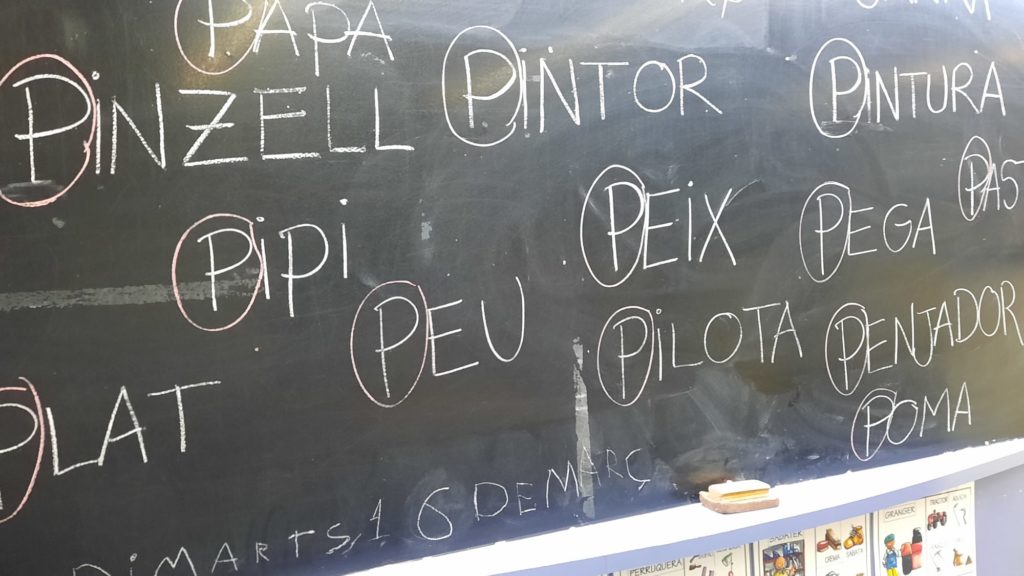 PAPA
PINZELL
PINTOR
PINTURA
PIPI
PEIX
PEGA
PEU
PILOTA
PENJADOR
PLAT
POMA
DIMARTS, 16 DE MARÇ
PERRUQUERA
SABATER
CREMA
SABATA
GRANGER
TRACTOR